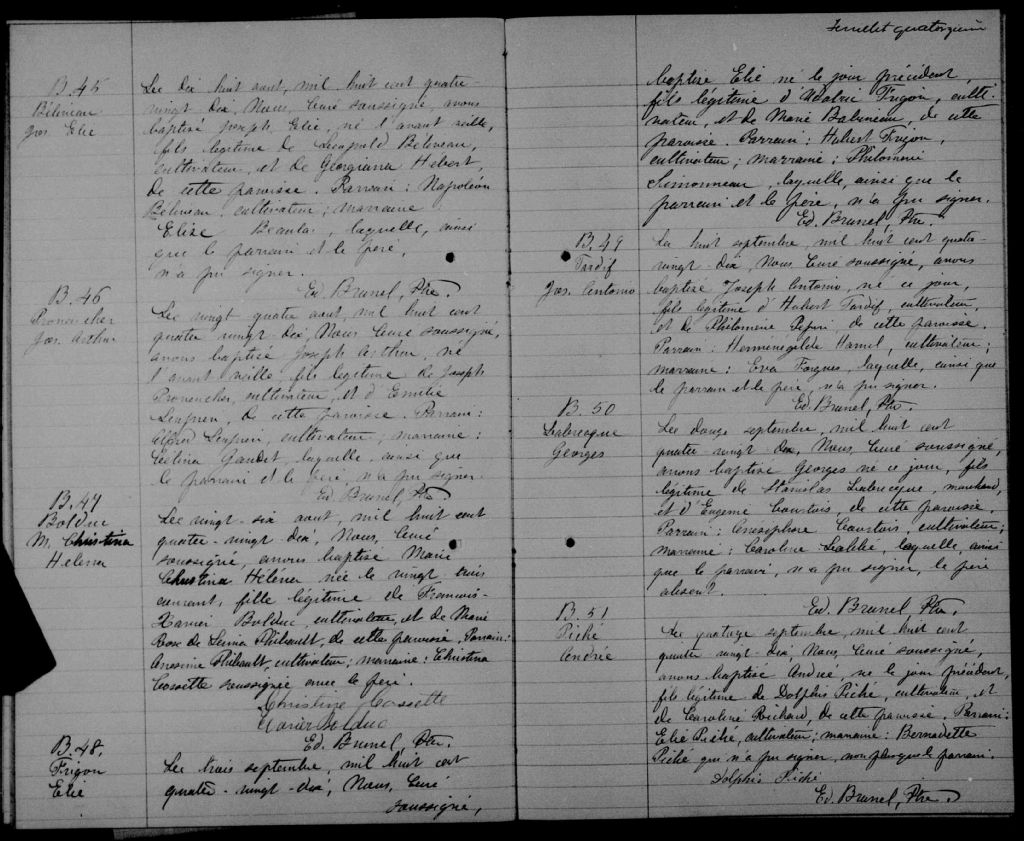 B. 45
Bélineau
Jos. Elie
Le dix huit aout, mil huit cent quatre-
vingt dix, Nous, Curé soussigné, avons
baptisé Joseph Elie, né l'avant veille,
fils légitime de Léopold Bélineau,
cultivateur, et de Georgiana Hébert,
de cette paroisse. Parrain : Napoléon
Bélineau, cultivateur ; marraine
Elise Beaulac, laquelle, ainsi
que le parrain et le père,
n'a pu signer.
Ed. Brunel, Ptre.
B. 46
Jos. Arthur
Le vingt quatre aout, mil huit cent
quatre vingt-dix Nous Curé soussigné,
avons baptisé Joseph Arthur, né
l'avant veille, fils légitime de Joseph
cultivateur, et d'Emilie
de cette paroisse. Parrain :
Alfred cultivateur ; marraine :
Célina Gaudet laquelle, ainsi que
le parrain et le père, n'a pu signer.
Ed. Brunel, Ptre
B. 47
Bolduc
M. Christina
Helena
Le vingt-six aout, mil huit cent
quatre-vingt dix, Nous, Curé
soussigné, avons baptisé Marie
Christina Helena née le vingt trois
courant, fille légitime de François-
Xavier Bolduc, cultivateur, et de Marie
Rose de Lima Thibault, de cette paroisse. Parrain :
Onesime Thibault, cultivateur ; marraine : Christina
Cossette soussignée avec le père.
Christine Cossette
Xavier Bolduc
Ed. Brunel, Ptre.
B. 48.
Frigon
Elie
Le trois septembre, mil huit cent
quatre-vingt-dix, Nous, Curé
soussigné,
Feuillet quatorzième
baptisé Elie né le jour précédent,
fils légitime d'Adolphe Frigon, culti-
vateur, et de Marie Babineau, de cette
paroisse. Parrain : Hubert Frigon,
cultivateur ; marraine : Philomène
Simonneau, laquelle, ainsi que le
parrain et le père, n'a pu signer.
Ed. Brunel, Ptre.
B. 49
Tardif
Jos. Antonio
Le huit septembre, mil huit cent quatre-
vingt-dix, Nous, Curé soussigné, avons
baptisé Joseph Antonio, né ce jour,
fils légitime d'Hubert Tardif, cultivateur,
et de Philomène de cette paroisse.
Parrain : Herménégilde Hamel, cultivateur ;
marraine : Eva Forgues, laquelle, ainsi que
le parrain et le père, n'a pu signer.
Ed. Brunel, Ptre.
B. 50
Labrecque
Georges
Le douze septembre, mil huit cent
quatre vingt dix, Nous, Curé soussigné,
avons baptisé Georges né ce jour, fils
légitime de Stanislas Labrecque, marchand,
et d'Eugénie Courtois, de cette paroisse.
Parrain : Onésiphore Courtois, cultivateur ;
marraine : Caroline Labbé, laquelle, ainsi
que le parrain, n'a pu signer, le père
absent.
Ed. Brunel Ptre.
B. 51
Piché
Andrée
Le quatorze septembre, mil huit cent
quatre-vingt-dix, Nous, Curé soussigné,
avons baptisé Andrée, né le jour précédent,
fils légitime de Dolphis Piché, cultivateur, et
de Caroline Richard, de cette paroisse. Parrain :
Elie Piché, cultivateur ; marraine : Bernadette
Piché qui n'a pu signer, non plus que le parrain.
Dolphis Piché
Ed. Brunel, Ptre.